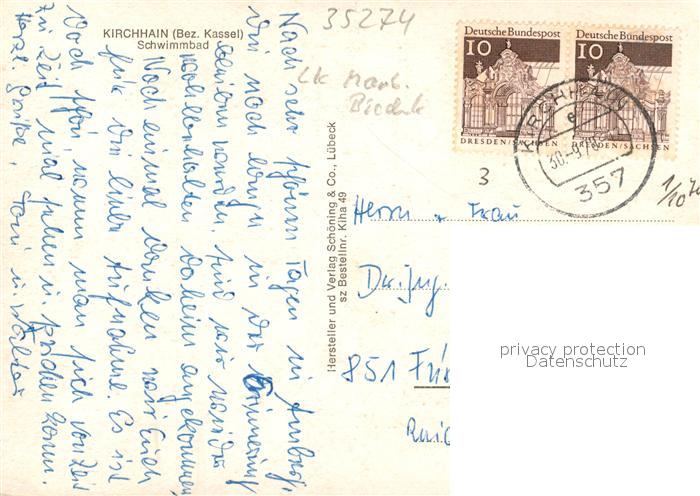 KIRCHHAIN (Bez. Kassel)
Schwimmbad
35274
Lk Marb.
Biedenk
Nach sehr schönen Tagen in Ambach,
die noch lange in der Erinnerung
bleiben werden, sind wir wieder
wohlbehalten daheim angekommen.
Noch einmal danken wir Euch
für die liebe Aufnahme. Es ist
doch schön, wenn man sich von Zeit
zu Zeit mal sehen u. sprechen kann.
Herzl. Grüße,
Hersteller und Verlag Schöning & Co., Lübeck
sz Bestellnr. Kiha 49
Deutsche Bundespost
10
DRESDEN/SACHSEN
Deutsche Bundespost
10
DRESDEN/SACHSEN
KIRCHHAIN
e
30.-9.70
357
3
1/10 70
Herrn u. Frau
851
privacy protection
Datenschutz